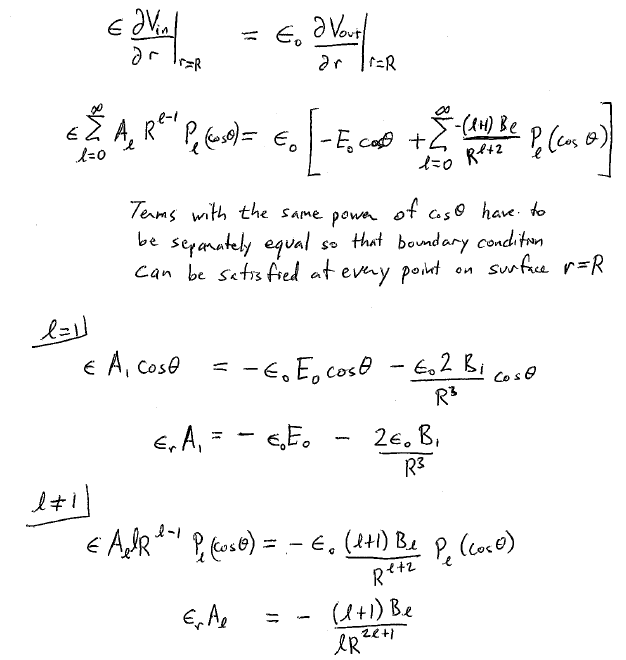 ϵ ∂V_in/∂r |_{r=R} = ϵ₀ ∂V_out/∂r |_{r=R}
ϵ ∑_{l=0}^{∞} A_l R^{l-1} P_l (cosθ) = ϵ₀ [ -E₀ cosθ + ∑_{l=0}^{∞} -(l+1) B_l / R^{l+2} P_l (cos θ) ]
Terms with the same power of cosθ have to
be separately equal so that boundary condition
can be satisfied at every point on surface r=R
l=1
ϵ A₁ cosθ = - ϵ₀ E₀ cosθ - ϵ₀ 2 B₁ / R³ cosθ
ϵ_r A₁ = - ϵ₀E₀ - 2ϵ₀ B₁ / R³
l≠1
ϵ A_l l R^{l-1} P_l (cosθ) = - ϵ₀ (l+1) B_l / R^{l+2} P_l (cosθ)
ϵ_r A_l = - (l+1) B_l / l R^{2l+1}